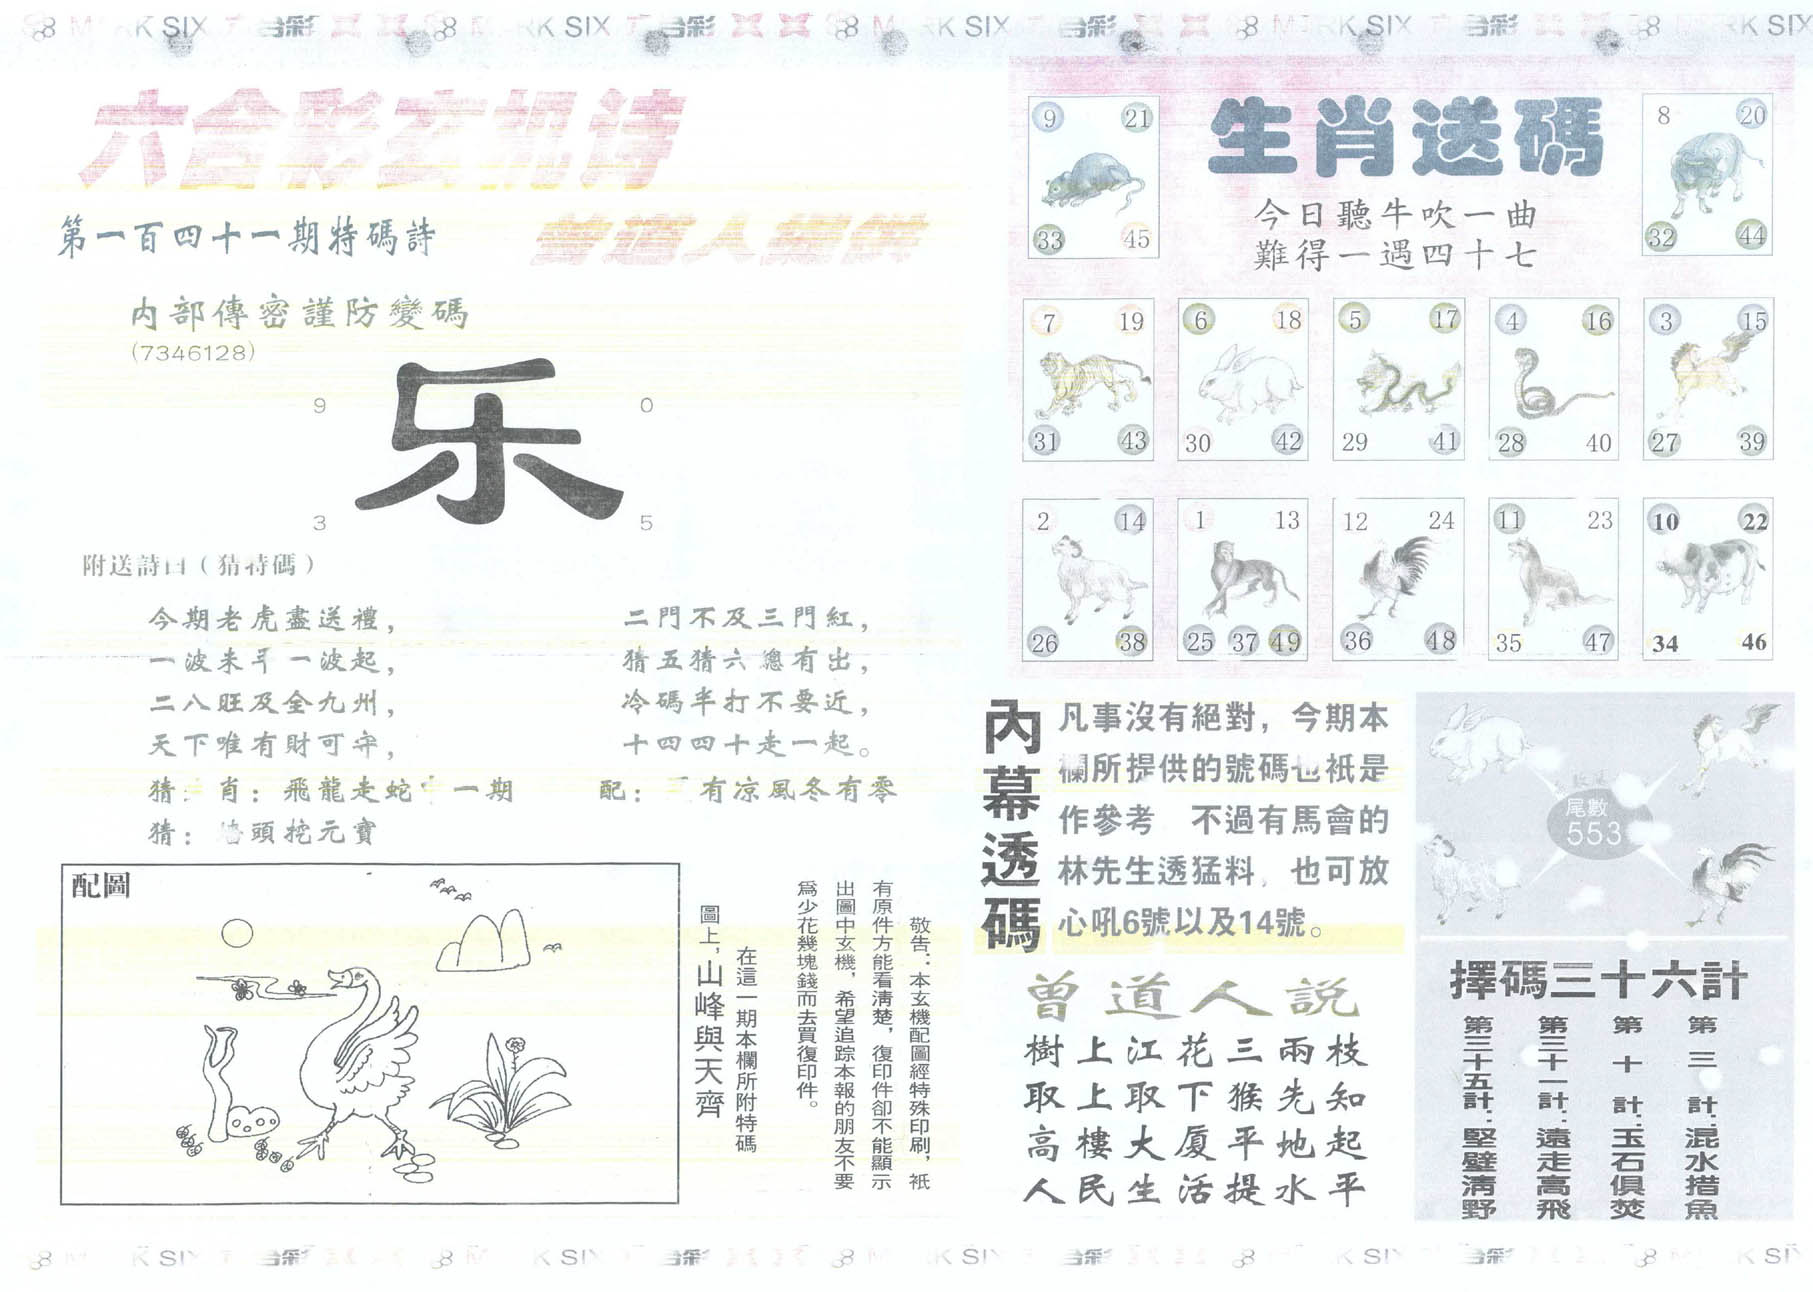 六合彩玄机诗
第一百四十一期特碼詩
曾道人提供
内部傳密謹防變碼
(7346128)
9 0
乐
3 5
附送詩曰（猜特碼）
今期老虎盡送禮，
一波未平一波起，
二八旺及全九州，
天下唯有財可守，
二門不及三門紅，
猜五猜六總有出，
冷碼半打不要近，
十四四十走一起。
猜 肖：飛龍走蛇中一期
配： 有凉風冬有零
猜：墻頭挖元寶
配圖
圖上，山峰與天齊
在這一期本欄所附特碼
敬告：本玄機配圖經特殊印刷，衹
有原件方能看清楚，復印件卻不能顯示
出圖中玄機，希望追踪本報的朋友不要
爲少花幾塊錢而去買復印件。
生肖送碼
今日聽牛吹一曲
難得一遇四十七
9 21
33 45
8 20
32 44
7 19
31 43
6 18
30 42
5 17
29 41
4 16
28 40
3 15
27 39
2 14
26 38
1 13
25 37 49
12 24
36 48
11 23
35 47
10 22
34 46
內幕透碼
凡事沒有絕對，今期本
欄所提供的號碼也衹是
作參考 不過有馬會的
林先生透猛料，也可放
心吼6號以及14號。
曾道人説
樹上江花三兩枝
取上取下猴先知
高樓大厦平地起
人民生活提水平
尾數
553
擇碼三十六計
第三計：混水措魚
第十計：玉石俱焚
第三十一計：遠走高飛
第三十五計：堅壁清野